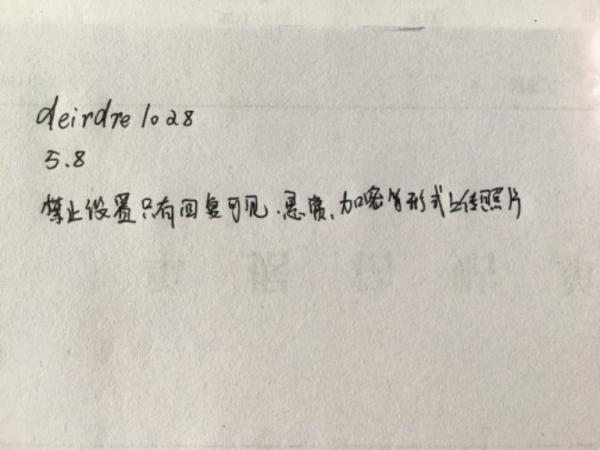 deirdre1028
5.8
禁止设置只有回复可见、悬赏、加密等形式上传照片